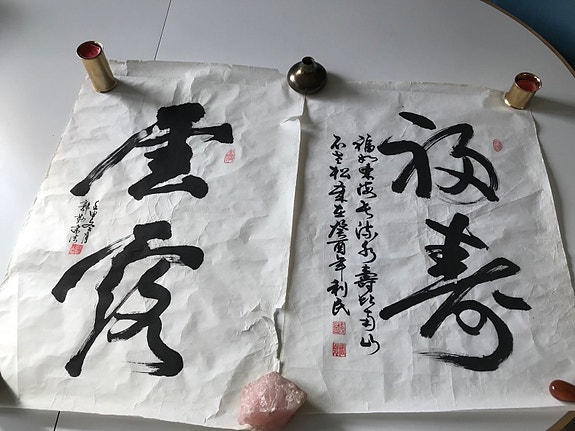 福
寿
福如東海長流水壽比南山
不老松歲在癸酉年利民
雲
露